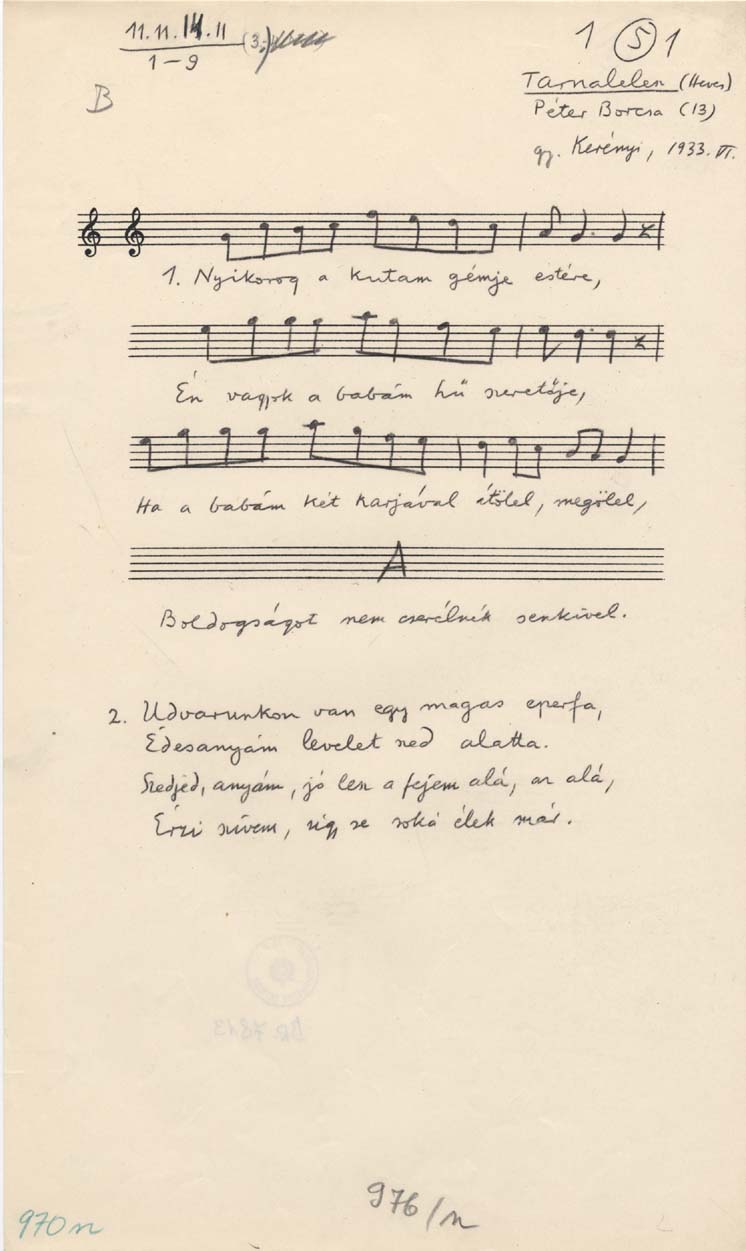 11. 11. 14. 11 (3.)
1-9
1 5 1
B
Tarnalelesz (Heves)
Péter Borcsa (13)
gy. Kerényi, 1933. VI.
1. Nyikorog a kutam gémje estére,
Én vagyok a babám hű szeretője,
Ha a babám két karjával átölel, megölel,
A
Boldogságot nem cserélnék senkivel.
2. Udvarunkon van egy magas eperfa,
Édesanyám levelet szed alatta.
Szedjed, anyám, jó lesz a fejem alá, az alá,
Érzi szívem, úgy se soká élek már.
970 n
976/n